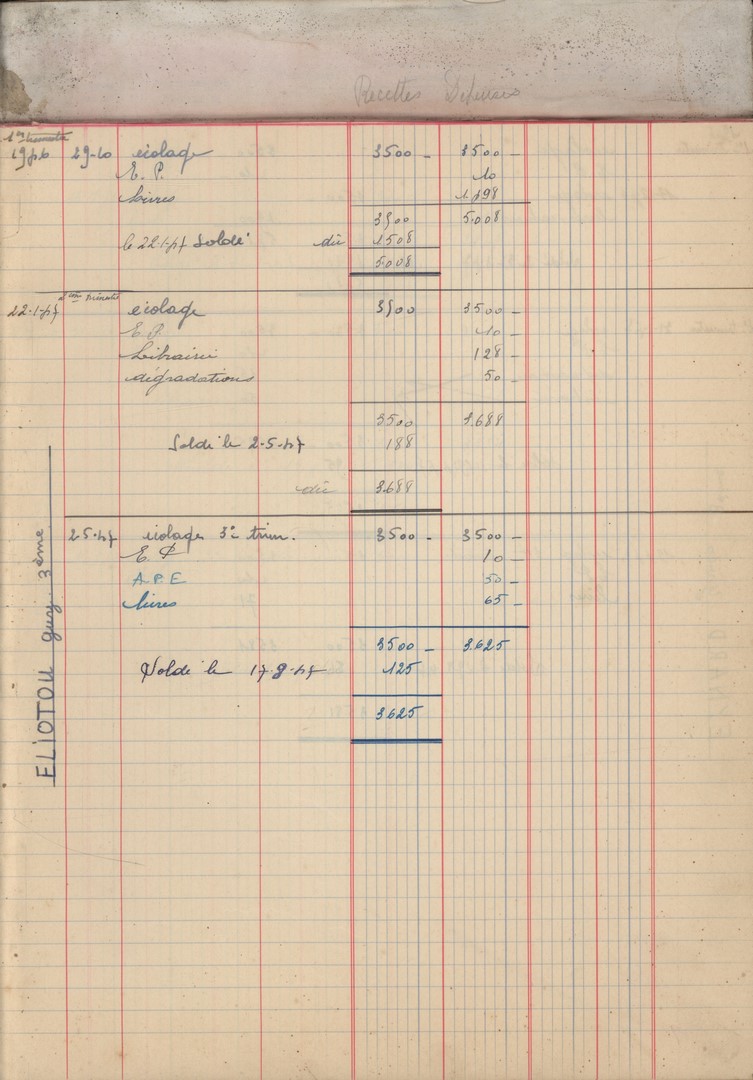 Recettes Dépenses
1er trimestre
1956 29-10 écolage 3500 - 3500 -
E. P. 10
livres 1.498
3500 5.008
le 22.1-57 Soldé dû 1.508
5.008
2ème trimestre
22-1-57 écolage 3500 3500 -
E. P. 10 -
Librairie 128 -
dégradations 50 -
3500 3.688
Soldé le 2-5-57 188
dû 3.688
2-5-57 écolage 3e trim. 3500 - 3500 -
E P 10 -
A.P.E 50 -
livres 65 -
3500 - 3.625
Soldé le 17-9-57 125
3625
ELIOTOU guy 3ème